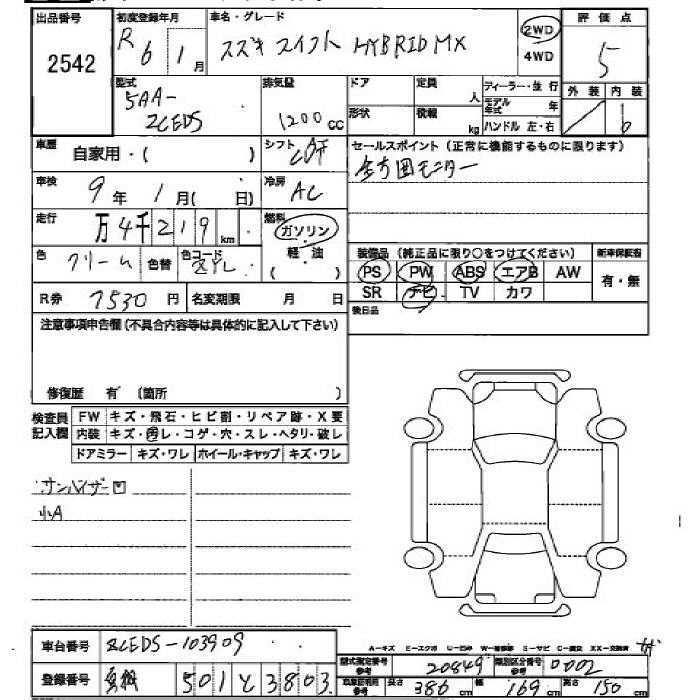 出品番号 初度登録年月 車名・グレード 評価点
2542 R6 1月 スズキ スイフト HYBRID MX 2WD 4WD 5
型式 排気量 ドア 定員 人 ディーラー・並行 外装 内装
5AA- ZCEDS 1200cc 形状 積載 kg モデル年式 年 ハンドル 左・右 6
車歴 自家用・( ) シフト セールスポイント(正常に機能するものに限ります)
車検 9年1月( 日) 冷房 AC 全方囲モニター
走行 万4千219km 燃料 ガソリン 軽油 ( )
色 クリーム 色替 色コード 装備品(純正品に限り○をつけてください) 新車保証書
PS PW ABS エアB AW 有・無
R券 7530円 名変期限 月 日 SR ナビ TV カワ
注意事項申告欄(不具合内容等は具体的に記入して下さい) 後日品
修復歴 有 (箇所 )
検査員記入欄 FW キズ・飛石・ヒビ割・リペア跡・X要
内装 キズ・汚レ・コゲ・穴・スレ・ヘタリ・破レ
ドアミラー キズ・ワレ ホイール・キャップ キズ・ワレ
サンバイザー
小A
車台番号 ZCEDS-103909
A-キズ E-エクボ U-凹み W-補修跡 S-サビ C-腐食 XX-交換済
型式指定番号 参考 20849 類別区分番号 参考 0002
登録番号 501 と 3803 車検証利用参考 長さ 386cm 幅 169cm 高さ 150cm